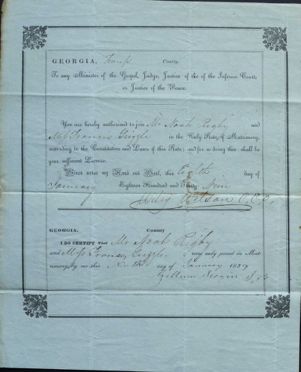 GEORGIA, Troup County.
To any Minister of the Gospel, Judge, Justice of the Inferior Court,
or Justice of the Peace.
You are hereby authorized to join Mr Noah Rigby and
Miss Frances in the Holy State of Matrimony,
according to the Constitution and Laws of this State; and for so doing this shall be
your sufficient License.
Given under my Hand and Seal, this Eighth day of
January Eighteen Hundred and Thirty Nine
Wilson C.C.O.
GEORGIA. County.
I DO CERTIFY That Mr Noah Rigby
and Miss Frances were duly joined in Mat-
rimony by me this Ninth day of January 1839